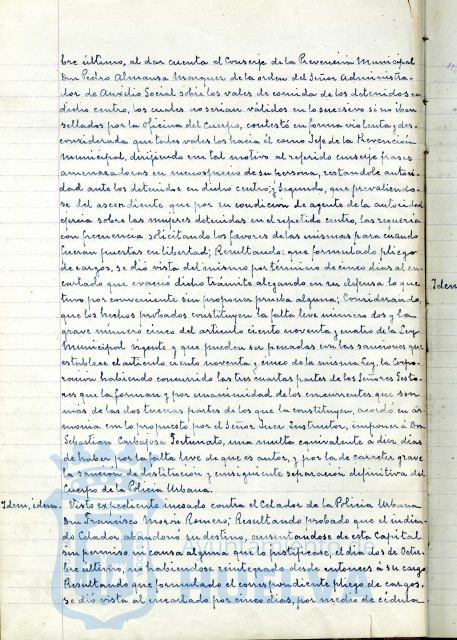 bre último, al dar cuenta el Conserje de la Prevención Municipal
Don Pedro Almansa Marques de la orden del Señor Administra-
dor de Auxilio Social sobre los vales de comida de los detenidos en
dicho centro, los cuales no serian válidos en lo sucesivo si no iban
sellados por la Oficina del Cuerpo, contestó en forma violenta y des-
considerada que tales vales los hacía él como Jefe de la Prevención
municipal, dirijiendo con tal motivo al referido conserje frases
amenazadoras en menosprecio de su persona, restandole autori-
dad ante los detenidos en dicho centro; y Segundo, que prevaliendo-
se del ascendiente que por su condición de agente de la autoridad
ejercia sobre las mujeres detenidas en el repetido centro, las requeria
con frecuencia solicitando los favores de las mismas para cuando
fueran puestas en libertad; Resultando: que formulado pliego
de cargos, se dió vista del mismo por término de cinco dias al en-
cartado que evacuó dicho trámite alegando en su defensa lo que
tuvo por conveniente sin proponer prueba alguna; Considerando,
que los hechos probados constituyen la falta leve número dos y la
grave número cinco del articulo ciento noventa y cuatro de la Ley
Municipal vigente y que pueden ser penadas con las sanciones que
establece el articulo ciento noventa y cinco de la misma Ley, la Corpo-
ración habiendo concurrido las tres cuartas partes de los Señores Gesto-
res que la forman y por unanimidad de los concurrentes que son
más de las dos terceras partes de los que la constituyen, acordó en ar-
monia con lo propuesto por el Señor Juez Instructor, imponer á Don
Sebastian Carbajosa Fortunato, una multa equivalente á diez dias
de haber por la falta leve de que es autor, y por la de caracter grave
la sanción de destitución y consiguiente separación definitiva del
Cuerpo de la Policia Urbana.
Idem, idem. Visto expediente incoado contra el Celador de la Policia Urbana
Don Francisco Morón Romero; Resultando probado que el indica-
do Celador abandonó su destino, ausentandose de esta Capital
sin permiso ni causa alguna que lo justifique, el dia dos de Octu-
bre último, no habiendose reintegrado desde entonces á su cargo
Resultando que formulado el correspondiente pliego de cargos,
se dió vista al encartado por cinco dias, por medio de cédula
Idem